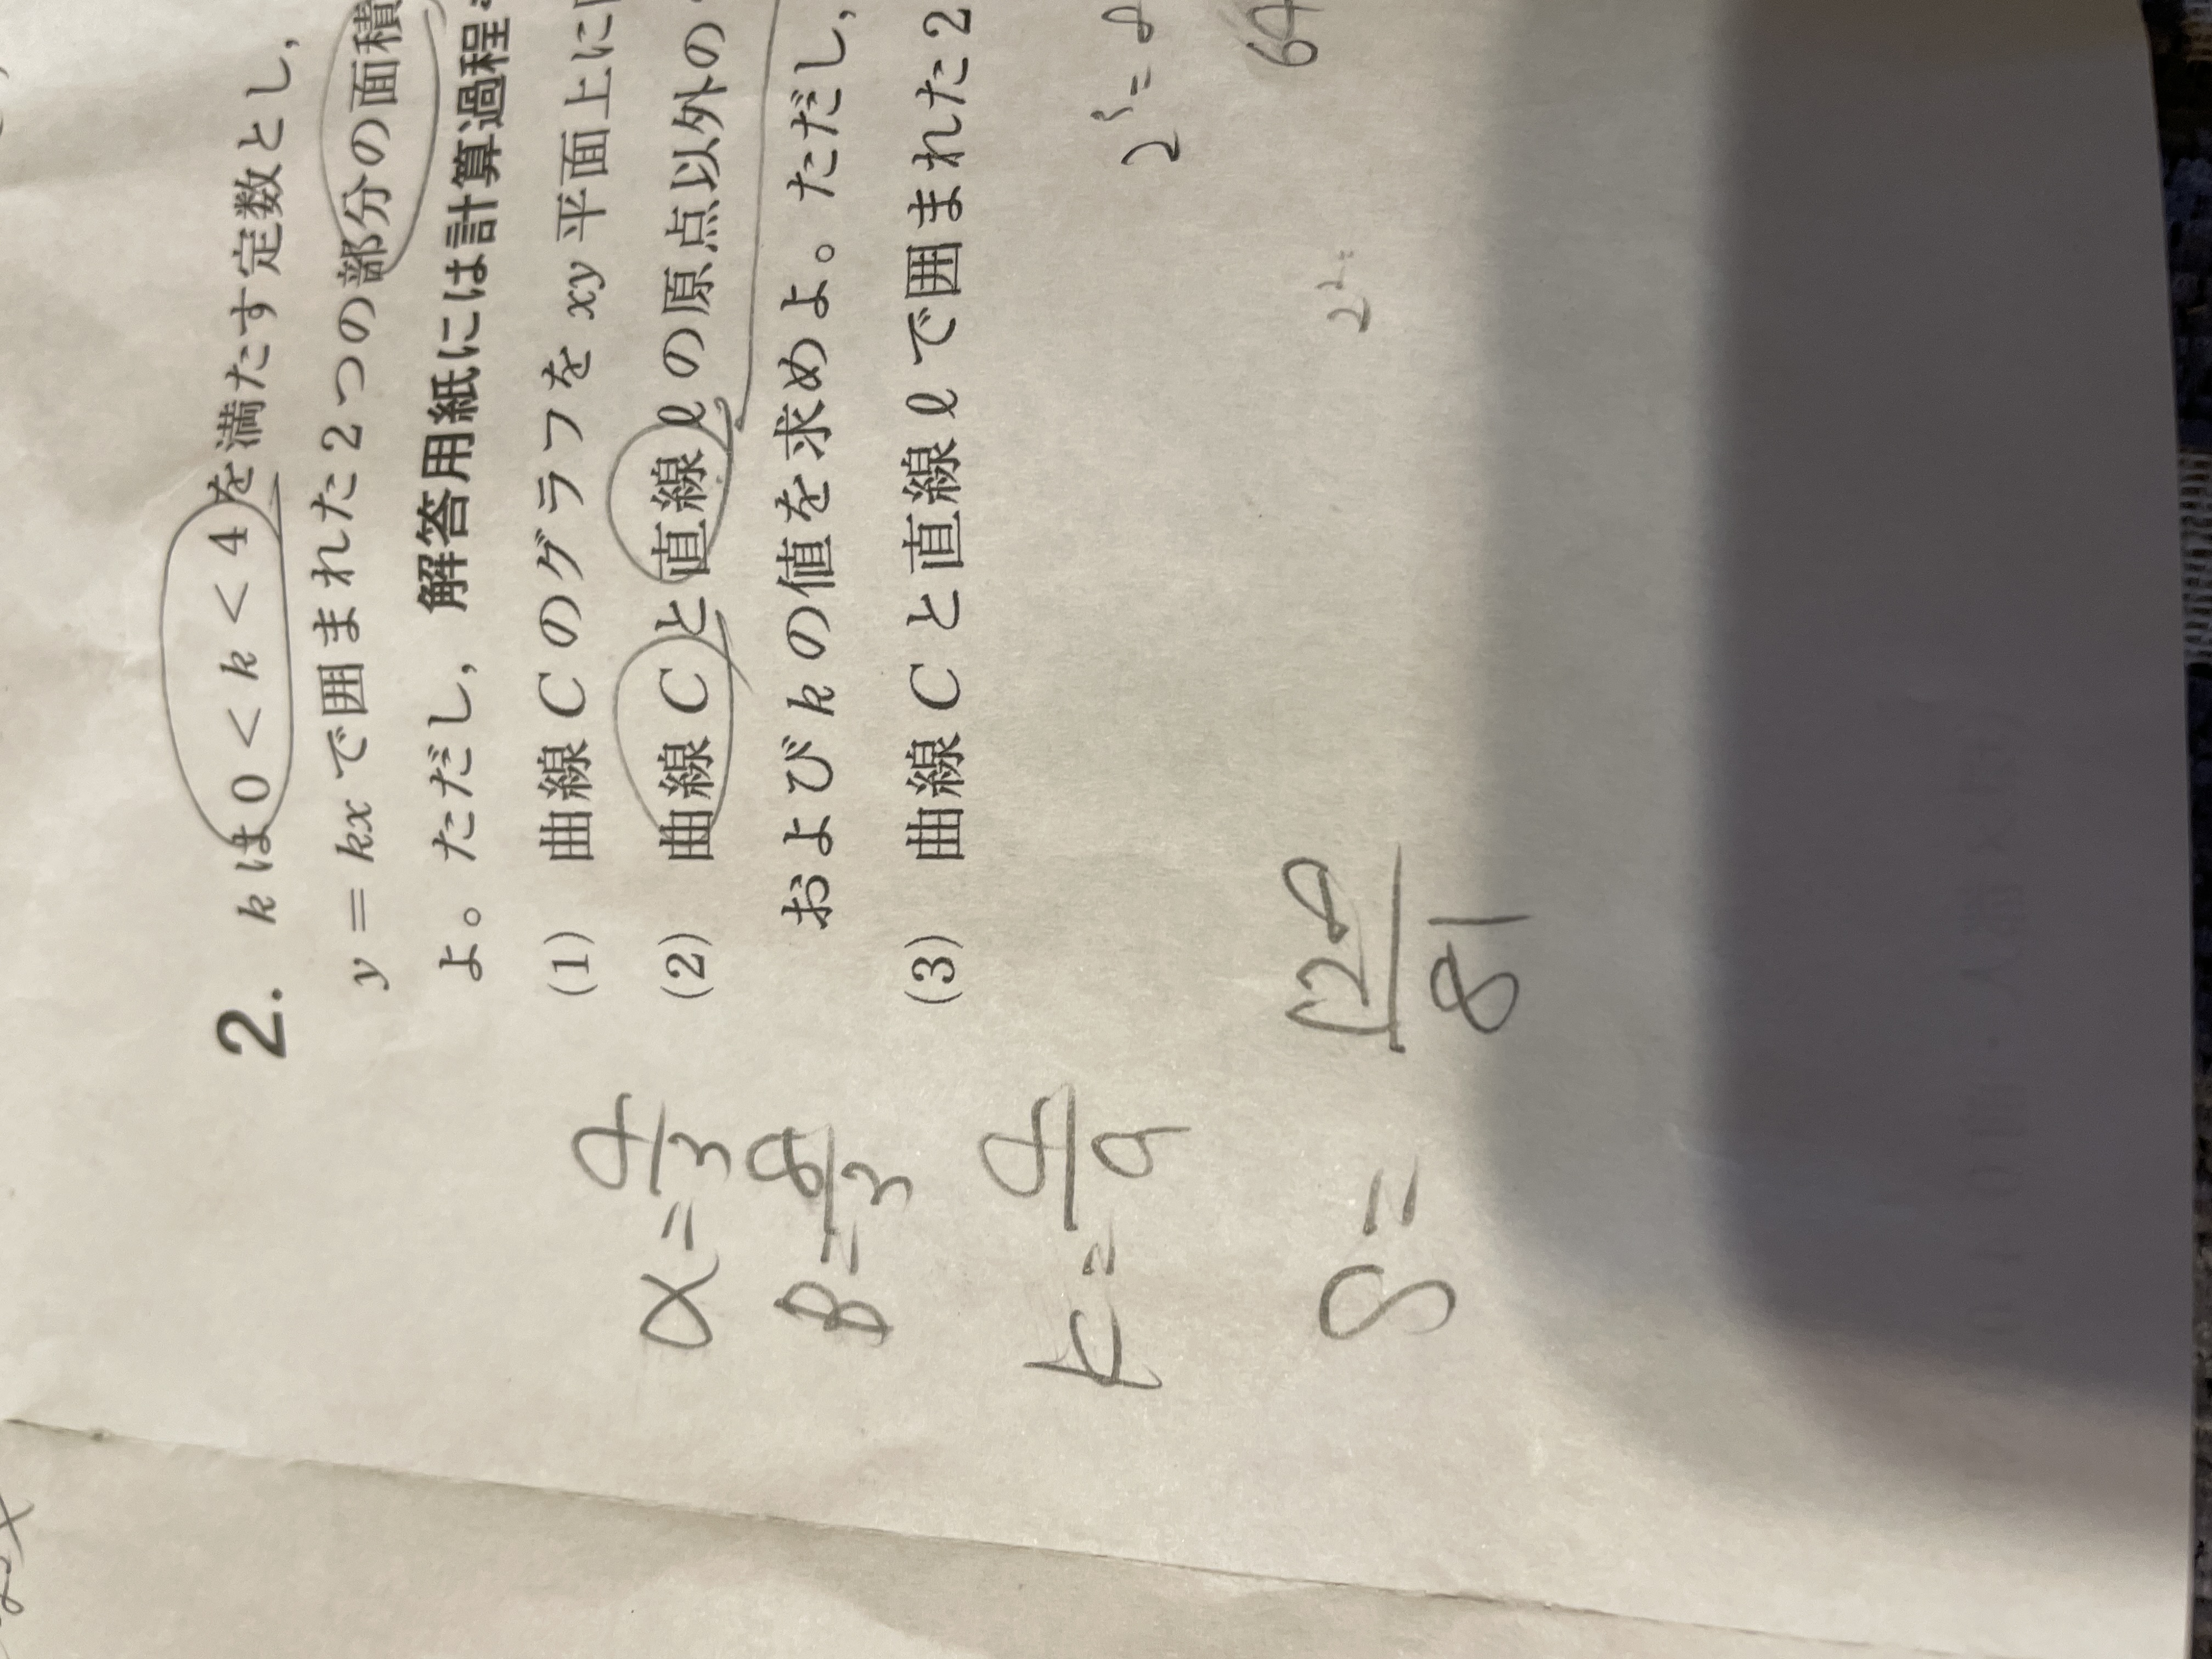 2. kは0<k<4を満たす定数とし,
y=kxで囲まれた2つの部分の面積
よ。ただし, 解答用紙には計算過程
(1) 曲線Cのグラフをxy平面上に
(2) 曲線Cと直線ℓの原点以外の
およびkの値を求めよ。ただし,
(3) 曲線Cと直線ℓで囲まれた2
α=4/3
β=8/3
k=4/9
S=128/81
2²=
64